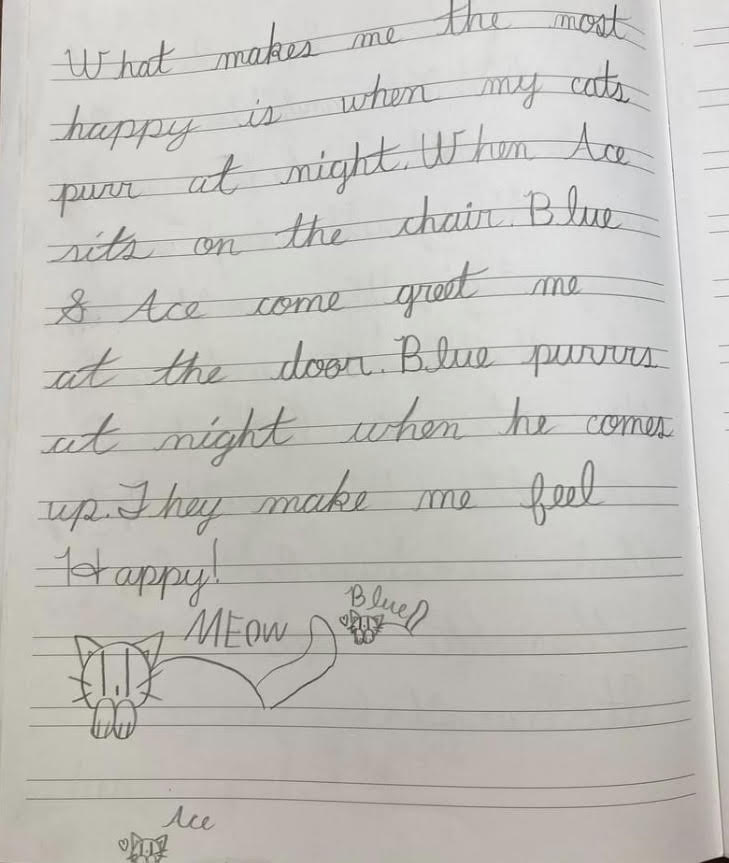 What makes me the most
happy is when my cats
purr at night. When Ace
sits on the chair. Blue
& Ace come greet me
at the door. Blue purrrs
at night when he comes
up. They make me feel
Happy!
Blue
MEOW
Ace